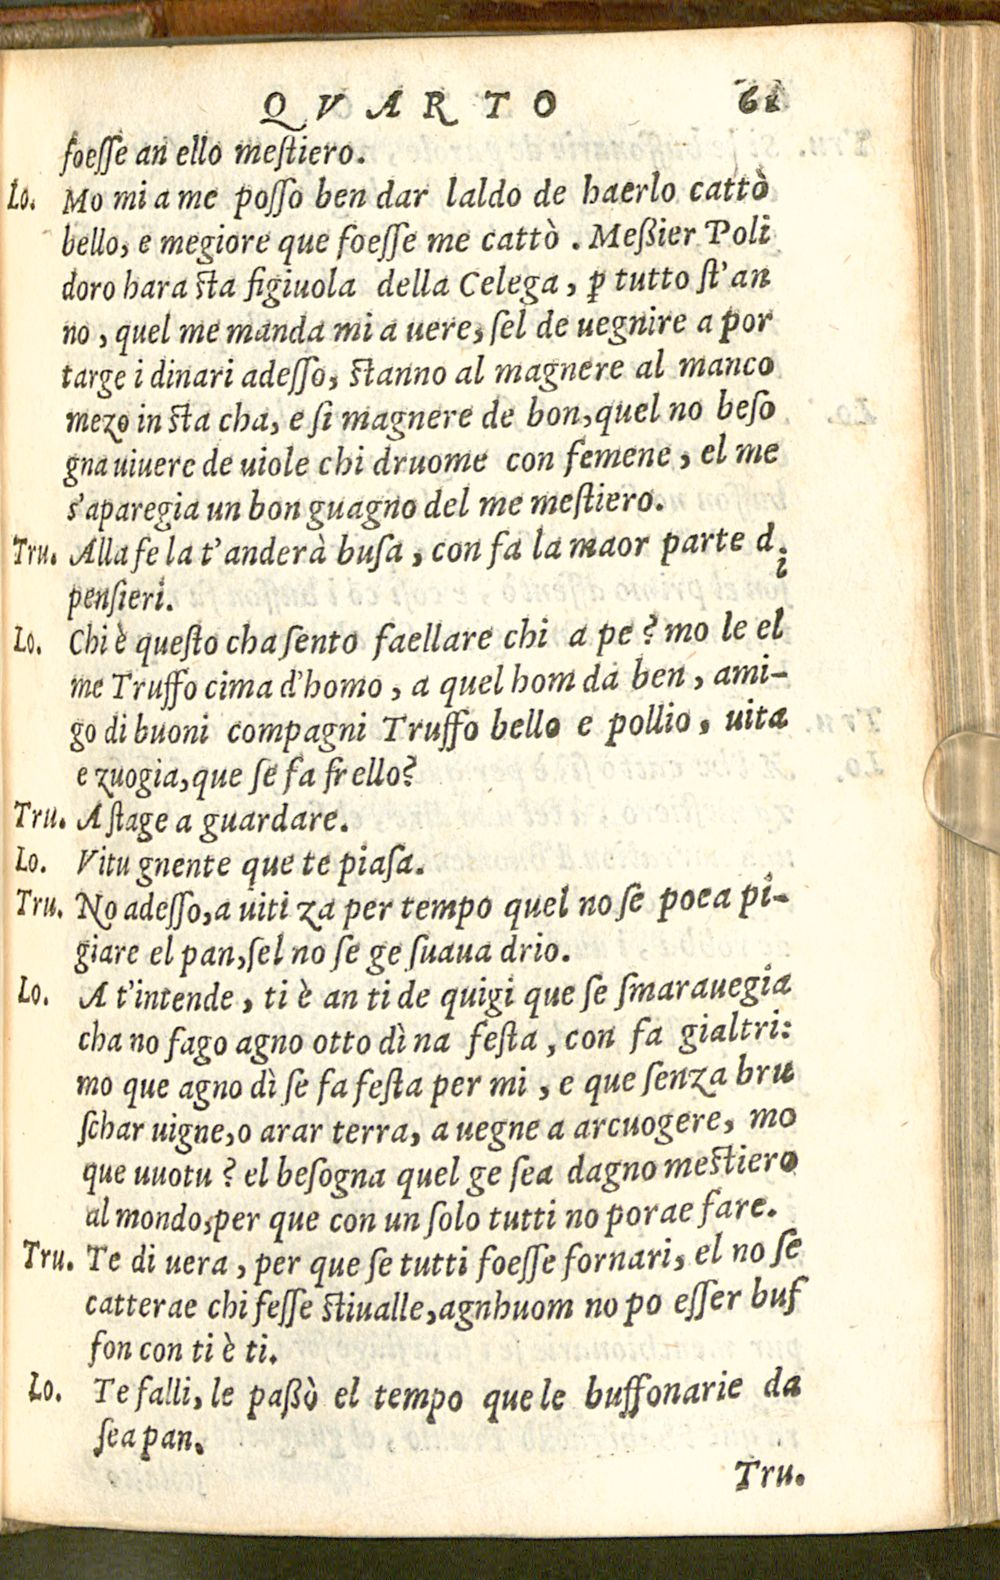 QVARTO 61
foesse an ello mestiero.
Lo. Mo mi a me posso ben dar laldo de haerlo cattò
bello, e megiore que foesse me cattò. Meßier Poli
doro hara sta figiuola della Celega, ꝑ tutto st'an
no, quel me manda mi a uere, sel de uegnire a por
targe i dinari adesso, stanno al magnere al manco
mezo in sta cha, e si magnere de bon, quel no beso
gna uiuere de uiole chi druome con femene, el me
s'aparegia un bon guagno del me mestiero.
Tru. Alla fe la t'anderà busa, con fa la maor parte di
pensieri.
Lo. Chi è questo cha sento faellare chi a pe? mo le el
me Truffo cima d'homo, a quel hom da ben, ami-
go di buoni compagni Truffo bello e pollio, uita
e zuogia, que se fa frello?
Tru. A stage a guardare.
Lo. Vitu gnente que te piasa.
Tru. No adesso, a uiti za per tempo quel no se poea pi-
giare el pan, sel no se ge suaua drio.
Lo. A t'intende, ti è an ti de quigi que se smarauegia
cha no fago agno otto dì na festa, con fa gialtri:
mo que agno dì se fa festa per mi, e que senza bru
schar uigne, o arar terra, a uegne a arcuogere, mo
que uuotu? el besogna quel ge sea dagno mestiero
al mondo, per que con un solo tutti no porae fare.
Tru. Te di uera, per que se tutti foesse fornari, el no se
catterae chi fesse stiualle, agnhuom no po esser buf
fon con ti è ti.
Lo. Te falli, le paßò el tempo que le buffonarie da
sea pan.
Tru.